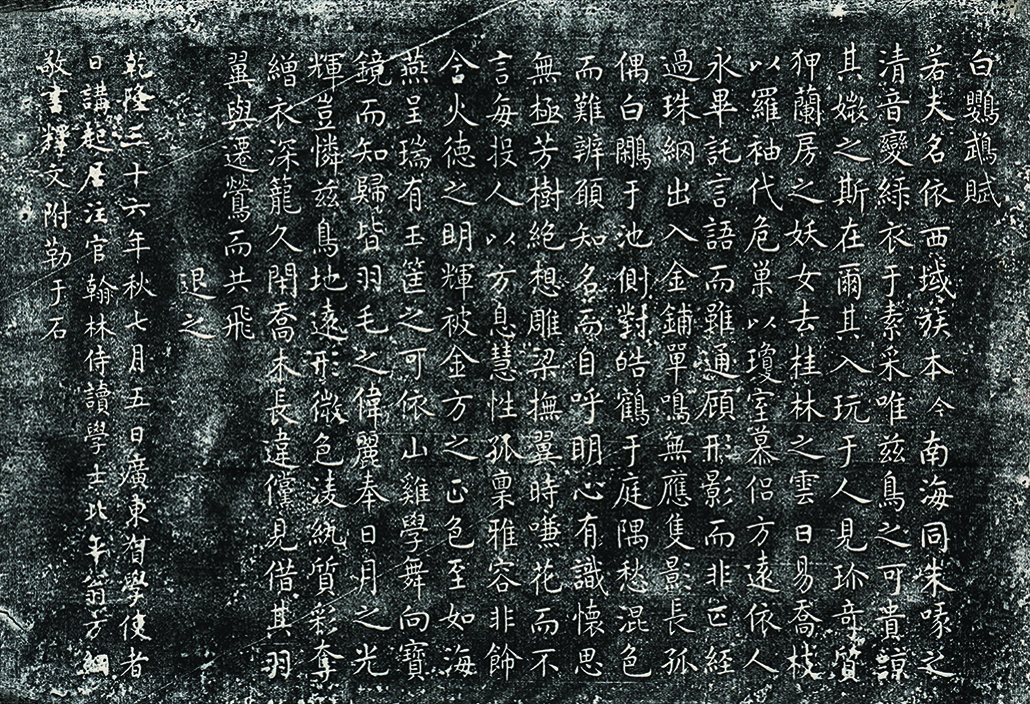 白鸚鵡賦
若夫名依西域族本今南海同朱喙之
清音變綠衣于素采唯兹鳥之可貴諒
其嫩之斯在爾其入玩于人見珎奇質
狎蘭房之妖女去桂林之雲日易喬枝
以羅袖代危巢以瓊室慕侣方遠依人
永畢託言語而雖通顧形影而非匹経
過珠網出入金鋪單鳴無應隻影長孤
偶白鷴于池側對皓鶴于庭隅愁混色
而難辨願知名而自呼明心有識懷思
無極芳樹絶想雕梁撫翼時嗛花而不
言每投人以方息慧性孤禀雅容非飾
含火德之明輝被金方之正色至如海
燕呈瑞有玉筐之可依山雞學舞向寶
鏡而知歸皆羽毛之偉麗奉日月之光
輝豈憐兹鳥地遠形微色凌紈質彩奪
繒衣深籠久閇喬木長違儻見借其羽
翼與遷鶯而共飛
退之
乾隆三十六年秋七月五日廣東督學使者
日講起居注官翰林侍讀學士北平翁方綱
敬書釋文附勒于石